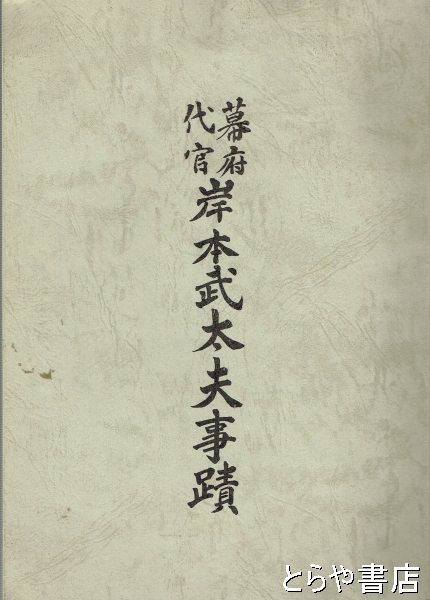 幕府
代官
岸本武太夫事蹟
とらや書店